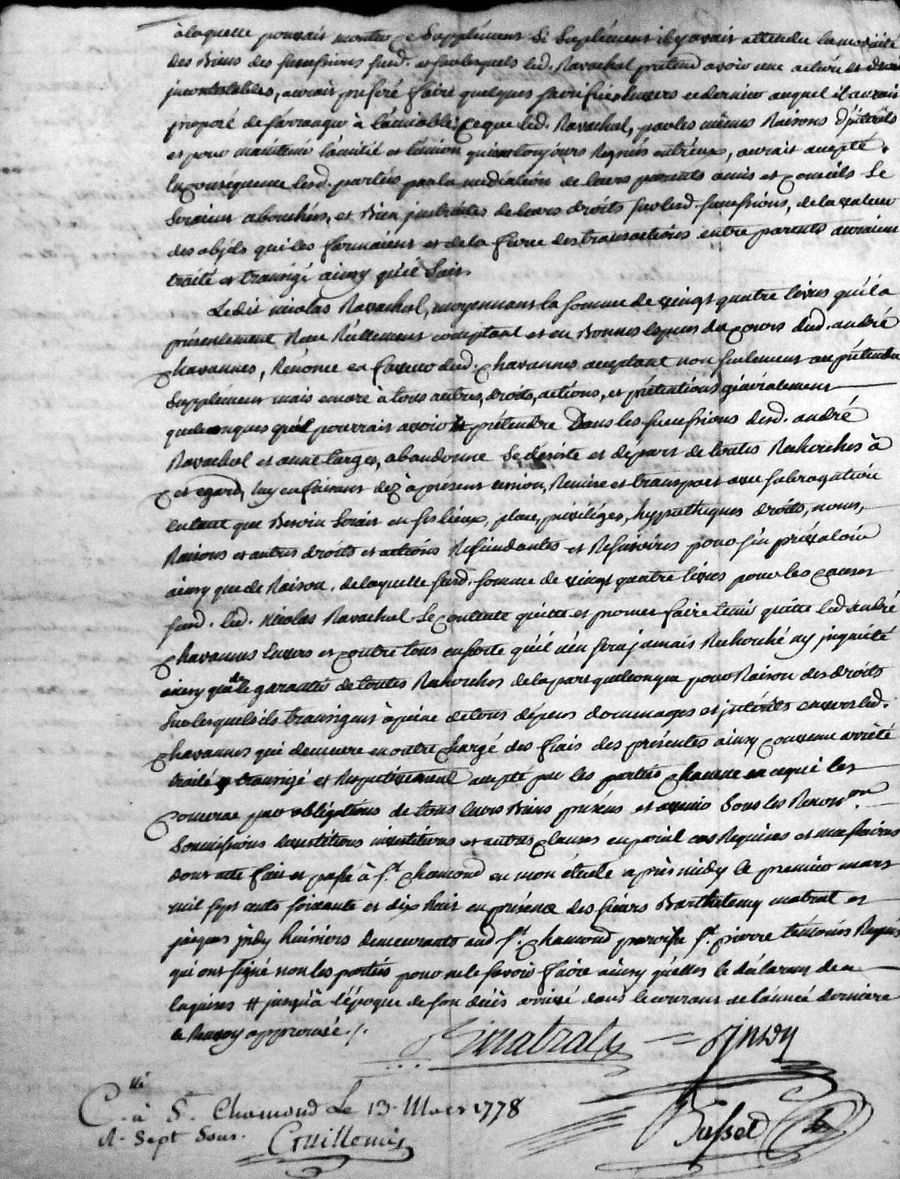 à laquelle pouvait monter ce Supplément Si Suplément il y avait attendu la modicité
des Biens des successions susd. et sur lesquels led. Ravachol prétend avoir une action et droits
incontestables, aurait préféré faire quelques sacrifices envers ce dernier auquel il aurait
proposé de s'arranger à l'amiable ce que led. Ravachol, par les mêmes Raisons d'intérêts
et pour maintenir l'amitié et l'union qui ont toujours Regnés entr'eux, aurait accepté.
En conséquence lesd. parties par la médiation de leurs parents amis et Conseils Se
Seraient abouchées, et Bien instruites de leurs droits sur lesd. successions, de la valeur
des objets qui les formaient et de la force des transactions entre parents auraient
traité et transigé ainsy qu'il Suit.
Ledit nicolas Ravachol, moyennant la somme de vingt quatre livres qu'il a
présentement Reçu Réellement comptant et en Bonnes Espèces du Cours dud. andré
Chavannes, Rénonce en faveur dud. Chavannes acceptant non seulement au prétendu
Supplément mais encore à tous autres, droits, actions, et prétentions généralement
quelconques qu'il pourrait avoir et prétendre Dans les successions desd. andré
Ravachol et anne Larges, abandonne Se désiste et départ de toutes Recherches à
Cet egard, luy en faisant dez à present cession, Remise et transport avec subrogation
en tant que Besoin Serait en ses lieux, place, priviléges, hyppothèques droits, noms,
Raisons et autres droits et actions Réscindantes et Réscisoires pour s'en prévaloir
ainsy que de Raison, de laquelle susd. somme de vingt quatre livres pour les causes
susd. led. Nicolas Ravachol Se contente quitte et promet faire tenir quitte led. andré
Chavannes Envers et Contre tous en sorte qu'il n'en sera jamais Recherché ny inquiété
ainsy que de le garantir de toutes Recherches de la part quelconque pour Raison des droits
Sur lesquels ils transigent à peine de tous dépens dommages et intérêts envers led.
Chavannes qui demeure en outre Chargé des frais des présentes ainsy Convenu arrêté
traité transigé et Respectivement accepté par les parties Chacune en ce qui les
Concerne par obligations de tous leurs Biens présens et avenir Sous les Renon.on
Soumissions et autres Clauses en pareil cas Requises et nécessaires
dont acte fait et passé à S.t Chamond en mon étude après midy le premier mars
mil sept cents soixante et dix huit en présence des sieurs Barthelemy matrat et
jacques jndy huissiers demeurants aud. S.t Chamond paroisse S.t pierre témoins Requis
qui ont signé non les parties pour ne le savoir faire ainsy qu'elles le déclarent de ce
Enquises # jusqu'à l'époque de son décès arrivé dans le courant de l'année dernière
le Renvoy approuvé ./.
B. matrat
jindy
C.llé à S.t Chamond Le 13. Mars 1778
R. Sept Sous.
Guillemin